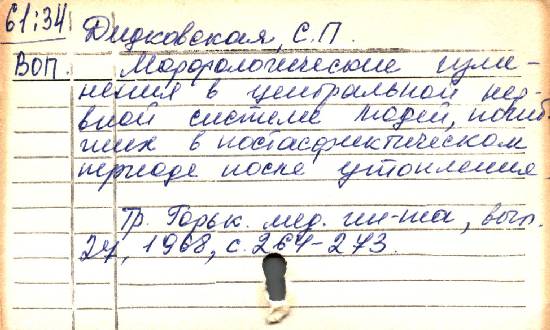 61:34 Дидковская, С.П.
Воп. Морфологические изме-
нения в центральной нер-
вной системе людей, погиб-
ших в постасфиктическом
периоде после утопления
Тр. Горьк. мед. ин-та, вып.
24, 1968, с. 264-273.